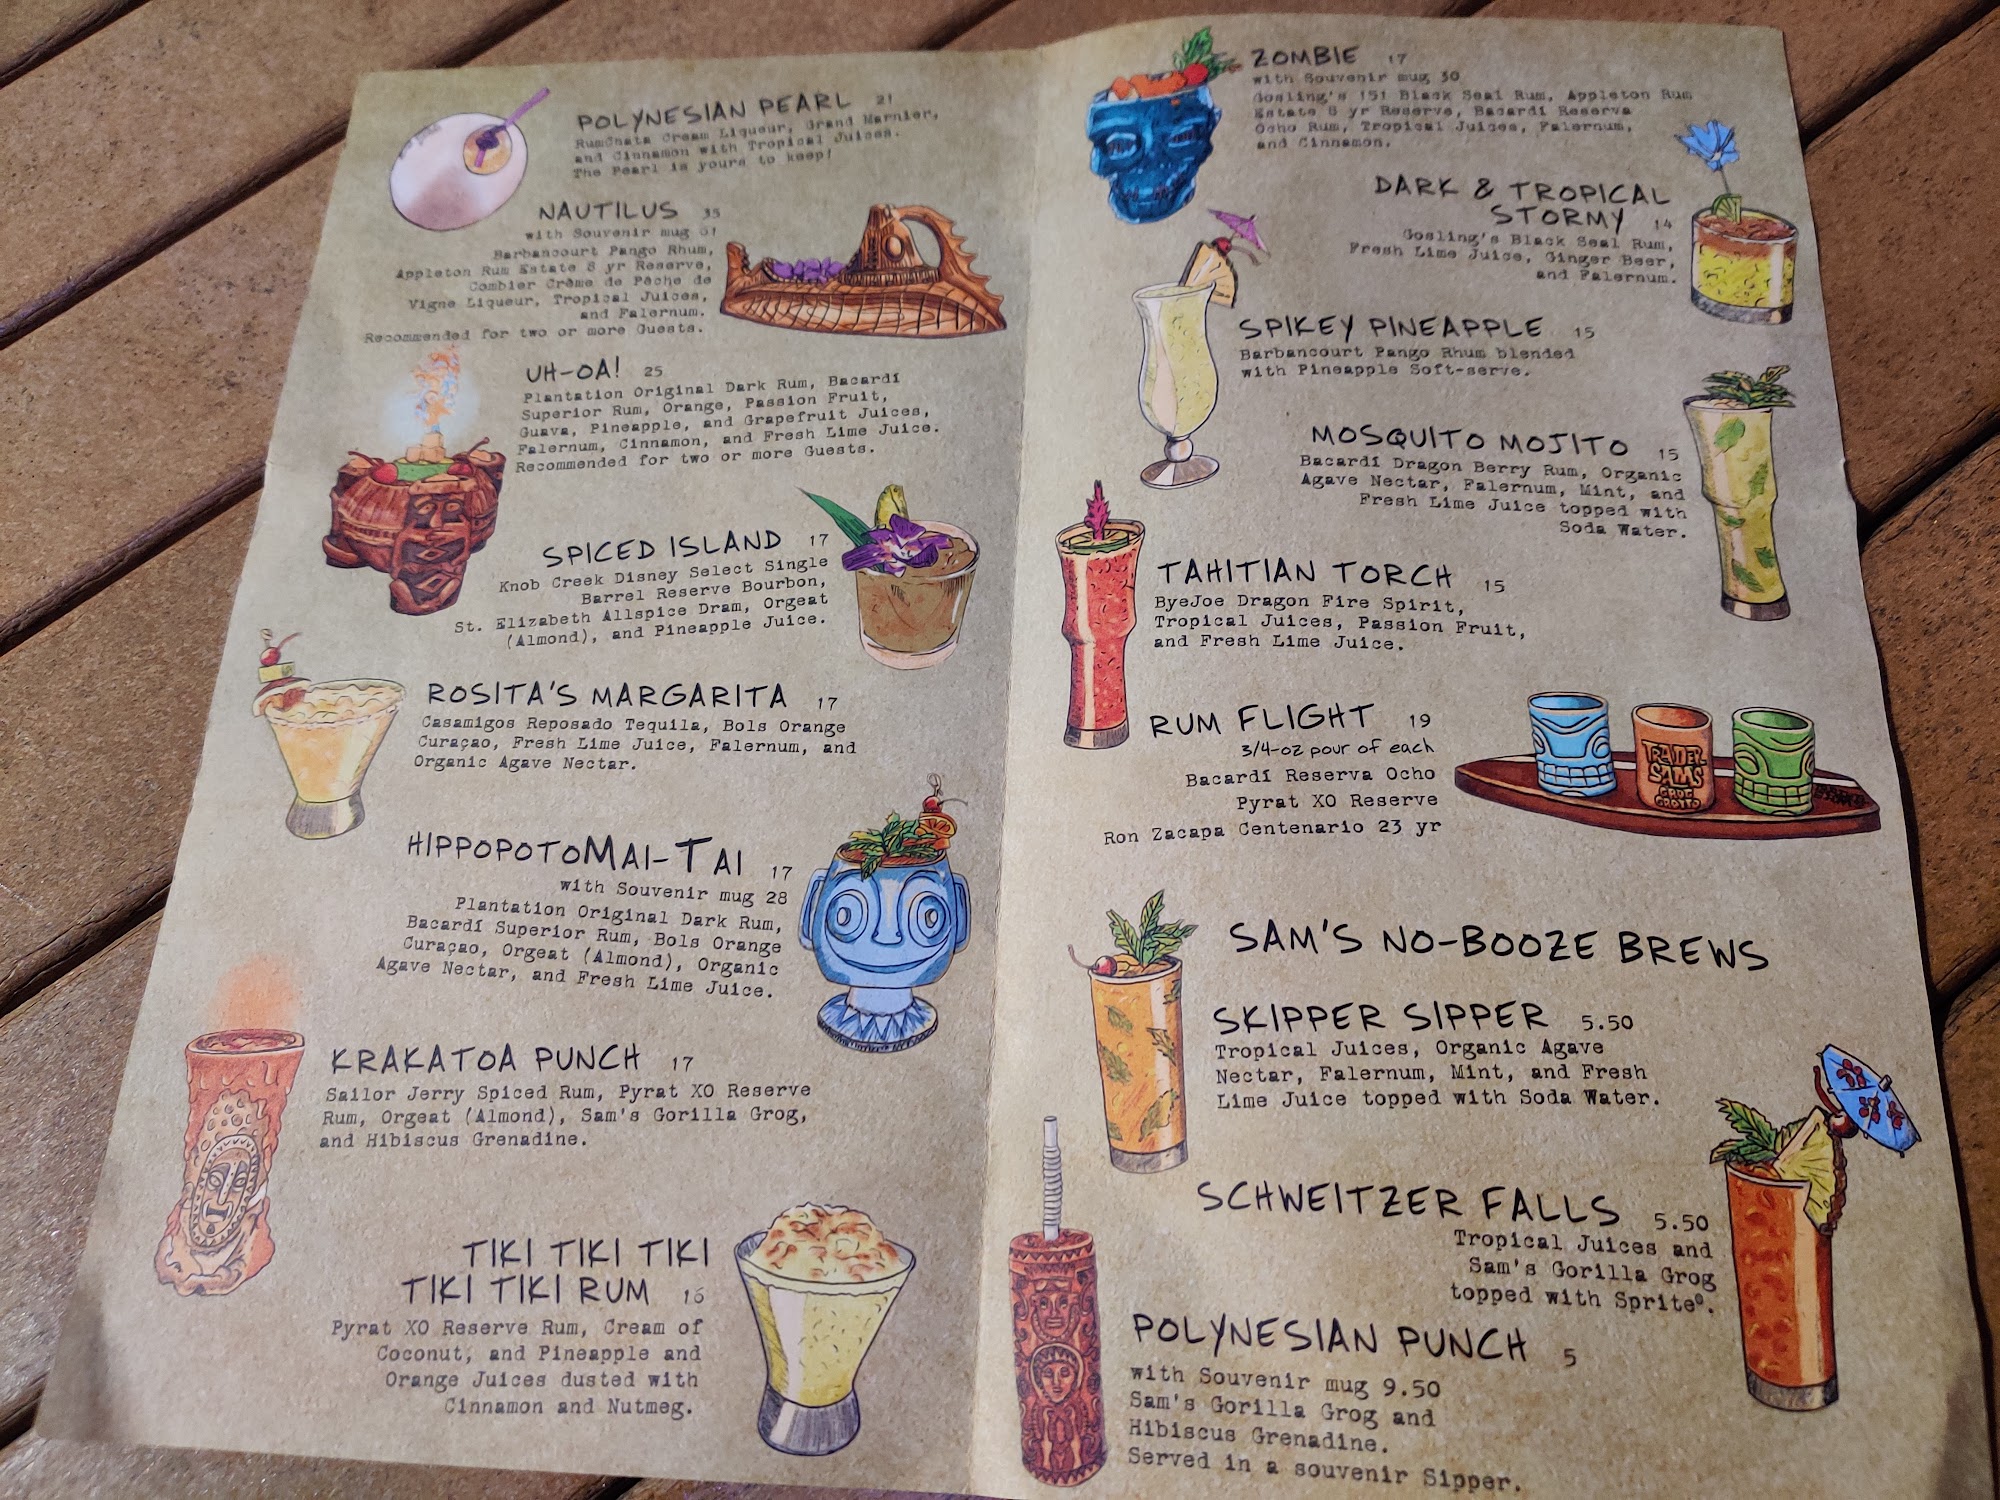 POLYNESIAN PEARL 21
RumChata Cream Liqueur, Grand Marnier,
and Cinnamon with Tropical Juices.
The Pearl is yours to keep!
NAUTILUS 35
with Souvenir mug 61
Barbancourt Pango Rhum,
Appleton Rum Estate 8 yr Reserve,
Combier Crème de Pêche de
Vigne Liqueur, Tropical Juices,
and Falernum.
Recommended for two or more Guests.
UH-OA! 25
Plantation Original Dark Rum, Bacardí
Superior Rum, Orange, Passion Fruit,
Guava, Pineapple, and Grapefruit Juices,
Falernum, Cinnamon, and Fresh Lime Juice.
Recommended for two or more Guests.
SPICED ISLAND 17
Knob Creek Disney Select Single
Barrel Reserve Bourbon,
St. Elizabeth Allspice Dram, Orgeat
(Almond), and Pineapple Juice.
ROSITA'S MARGARITA 17
Casamigos Reposado Tequila, Bols Orange
Curaçao, Fresh Lime Juice, Falernum, and
Organic Agave Nectar.
HIPPOPOTOMAI-TAI 17
with Souvenir mug 28
Plantation Original Dark Rum,
Bacardí Superior Rum, Bols Orange
Curaçao, Orgeat (Almond), Organic
Agave Nectar, and Fresh Lime Juice.
KRAKATOA PUNCH 17
Sailor Jerry Spiced Rum, Pyrat XO Reserve
Rum, Orgeat (Almond), Sam's Gorilla Grog,
and Hibiscus Grenadine.
TIKI TIKI TIKI
TIKI TIKI RUM 16
Pyrat XO Reserve Rum, Cream of
Coconut, and Pineapple and
Orange Juices dusted with
Cinnamon and Nutmeg.
ZOMBIE 17
with Souvenir mug 30
Gosling's 151 Black Seal Rum, Appleton Rum
Estate 8 yr Reserve, Bacardí Reserva
Ocho Rum, Tropical Juices, Falernum,
and Cinnamon.
DARK & TROPICAL
STORMY 14
Gosling's Black Seal Rum,
Fresh Lime Juice, Ginger Beer,
and Falernum.
SPIKEY PINEAPPLE 15
Barbancourt Pango Rhum blended
with Pineapple Soft-serve.
MOSQUITO MOJITO 15
Bacardí Dragon Berry Rum, Organic
Agave Nectar, Falernum, Mint, and
Fresh Lime Juice topped with
Soda Water.
TAHITIAN TORCH 15
ByeJoe Dragon Fire Spirit,
Tropical Juices, Passion Fruit,
and Fresh Lime Juice.
RUM FLIGHT 19
3/4-oz pour of each
Bacardí Reserva Ocho
Pyrat XO Reserve
Ron Zacapa Centenario 23 yr
TRADER
SAM'S
GROG
GROTTO
SAM'S NO-BOOZE BREWS
SKIPPER SIPPER 5.50
Tropical Juices, Organic Agave
Nectar, Falernum, Mint, and Fresh
Lime Juice topped with Soda Water.
SCHWEITZER FALLS 5.50
Tropical Juices and
Sam's Gorilla Grog
topped with Sprite®.
POLYNESIAN PUNCH 5
with Souvenir mug 9.50
Sam's Gorilla Grog and
Hibiscus Grenadine.
Served in a souvenir Sipper.